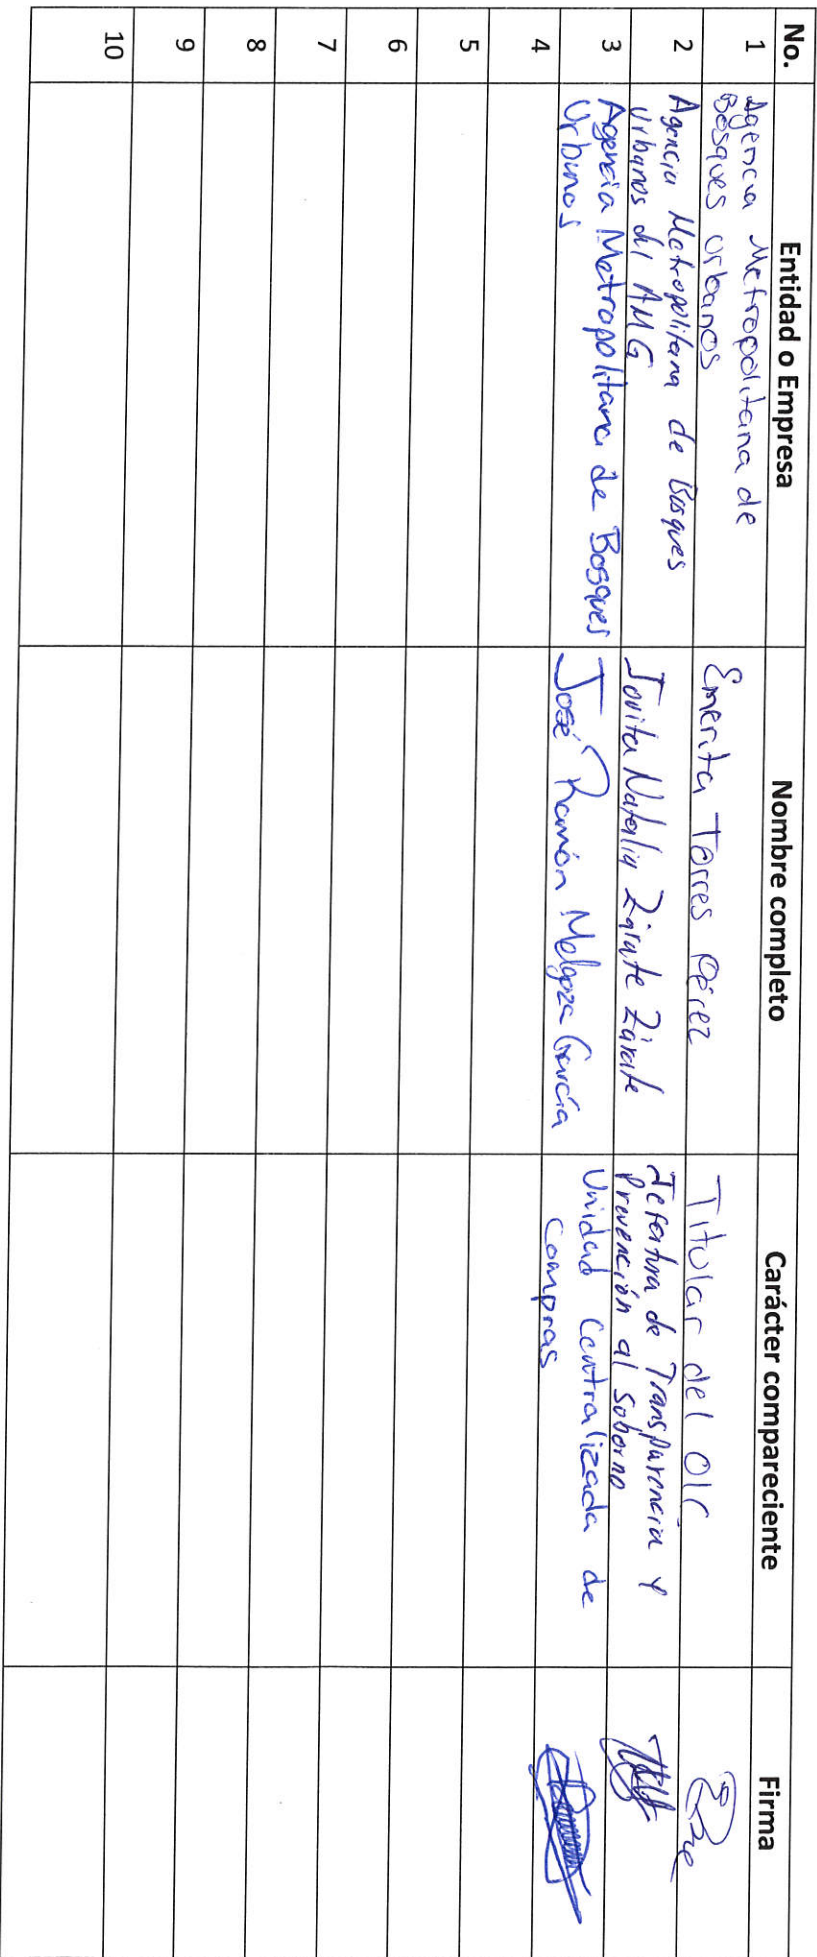 No. Entidad o Empresa Nombre completo Carácter compareciente Firma
1 Agencia Metropolitana de Bosques Urbanos Emerita Torres Pérez Titular del OIC
2 Agencia Metropolitana de Bosques Urbanos del AMG Jovita Natalia Zárate Zárate Jefatura de Transparencia y Prevención al soborno
3 Agencia Metropolitana de Bosques Urbanos José Ramón Melgoza García Unidad Centralizada de Compras
4
5
6
7
8
9
10